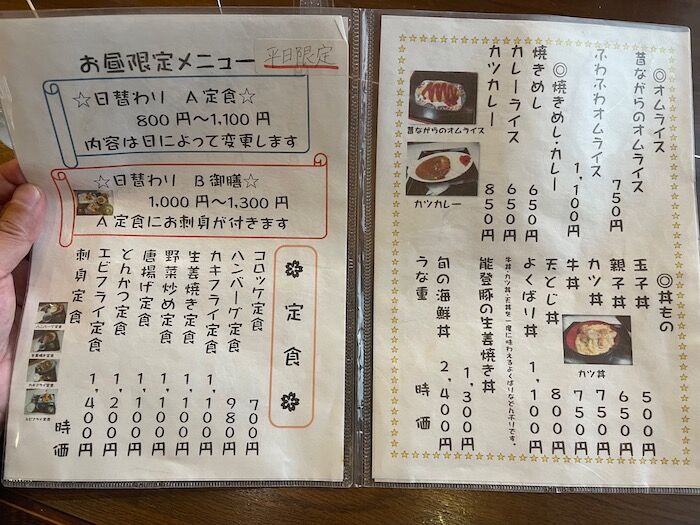 お昼限定メニュー
平日限定
☆日替わり A定食☆
800円～1,100円
内容は日によって変更します
☆日替わり B御膳☆
1,000円～1,300円
A定食にお刺身が付きます
定食
コロッケ定食 700円
ハンバーグ定食 980円
カキフライ定食 1,100円
生姜焼き定食 1,100円
野菜炒め定食 1,100円
唐揚げ定食 1,100円
とんかつ定食 1,200円
エビフライ定食 1,400円
刺身定食 時価
ハンバーグ定食
生姜焼き定食
カキフライ定食
エビフライ定食
◎オムライス
昔ながらのオムライス 750円
ふわふわオムライス 1,100円
◎焼きめし・カレー
焼きめし 650円
カレーライス 650円
カツカレー 850円
昔ながらのオムライス
カツカレー
◎丼もの
玉子丼 500円
親子丼 650円
カツ丼 750円
牛丼 750円
天とじ丼 800円
よくばり丼 1,100円
牛丼・カツ丼・天丼を一度に味わえるよくばりなどんぶりです。
能登豚の生姜焼き丼 1,300円
旬の海鮮丼 2,400円
うな重 時価
カツ丼